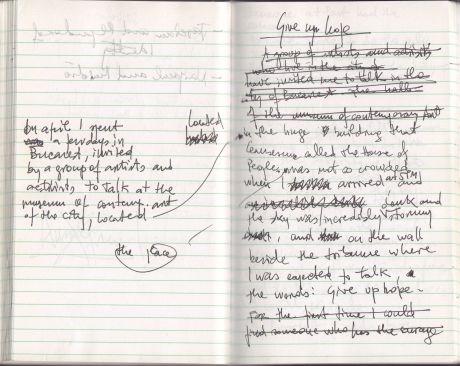 by april I went
a few days in
Bucarest, invited
by a group of artists and
activists to talk at the
museum of contemp. art
of the city, located
located
the place
Give up hope
A group of artists and activists
who live in the
have invited me to talk in the
city of Bucarest the halls
of the museum of contemporary art
in the huge building that
Ceausescu called the House of
Peoples was not so crowded
when I arrived at 5PM and
dark and
the sky was incredibly stormy
, and on the wall
beside the tribune where
I was expected to talk,
the words: Give up hope.
For the first time I could
find someone who has the courage